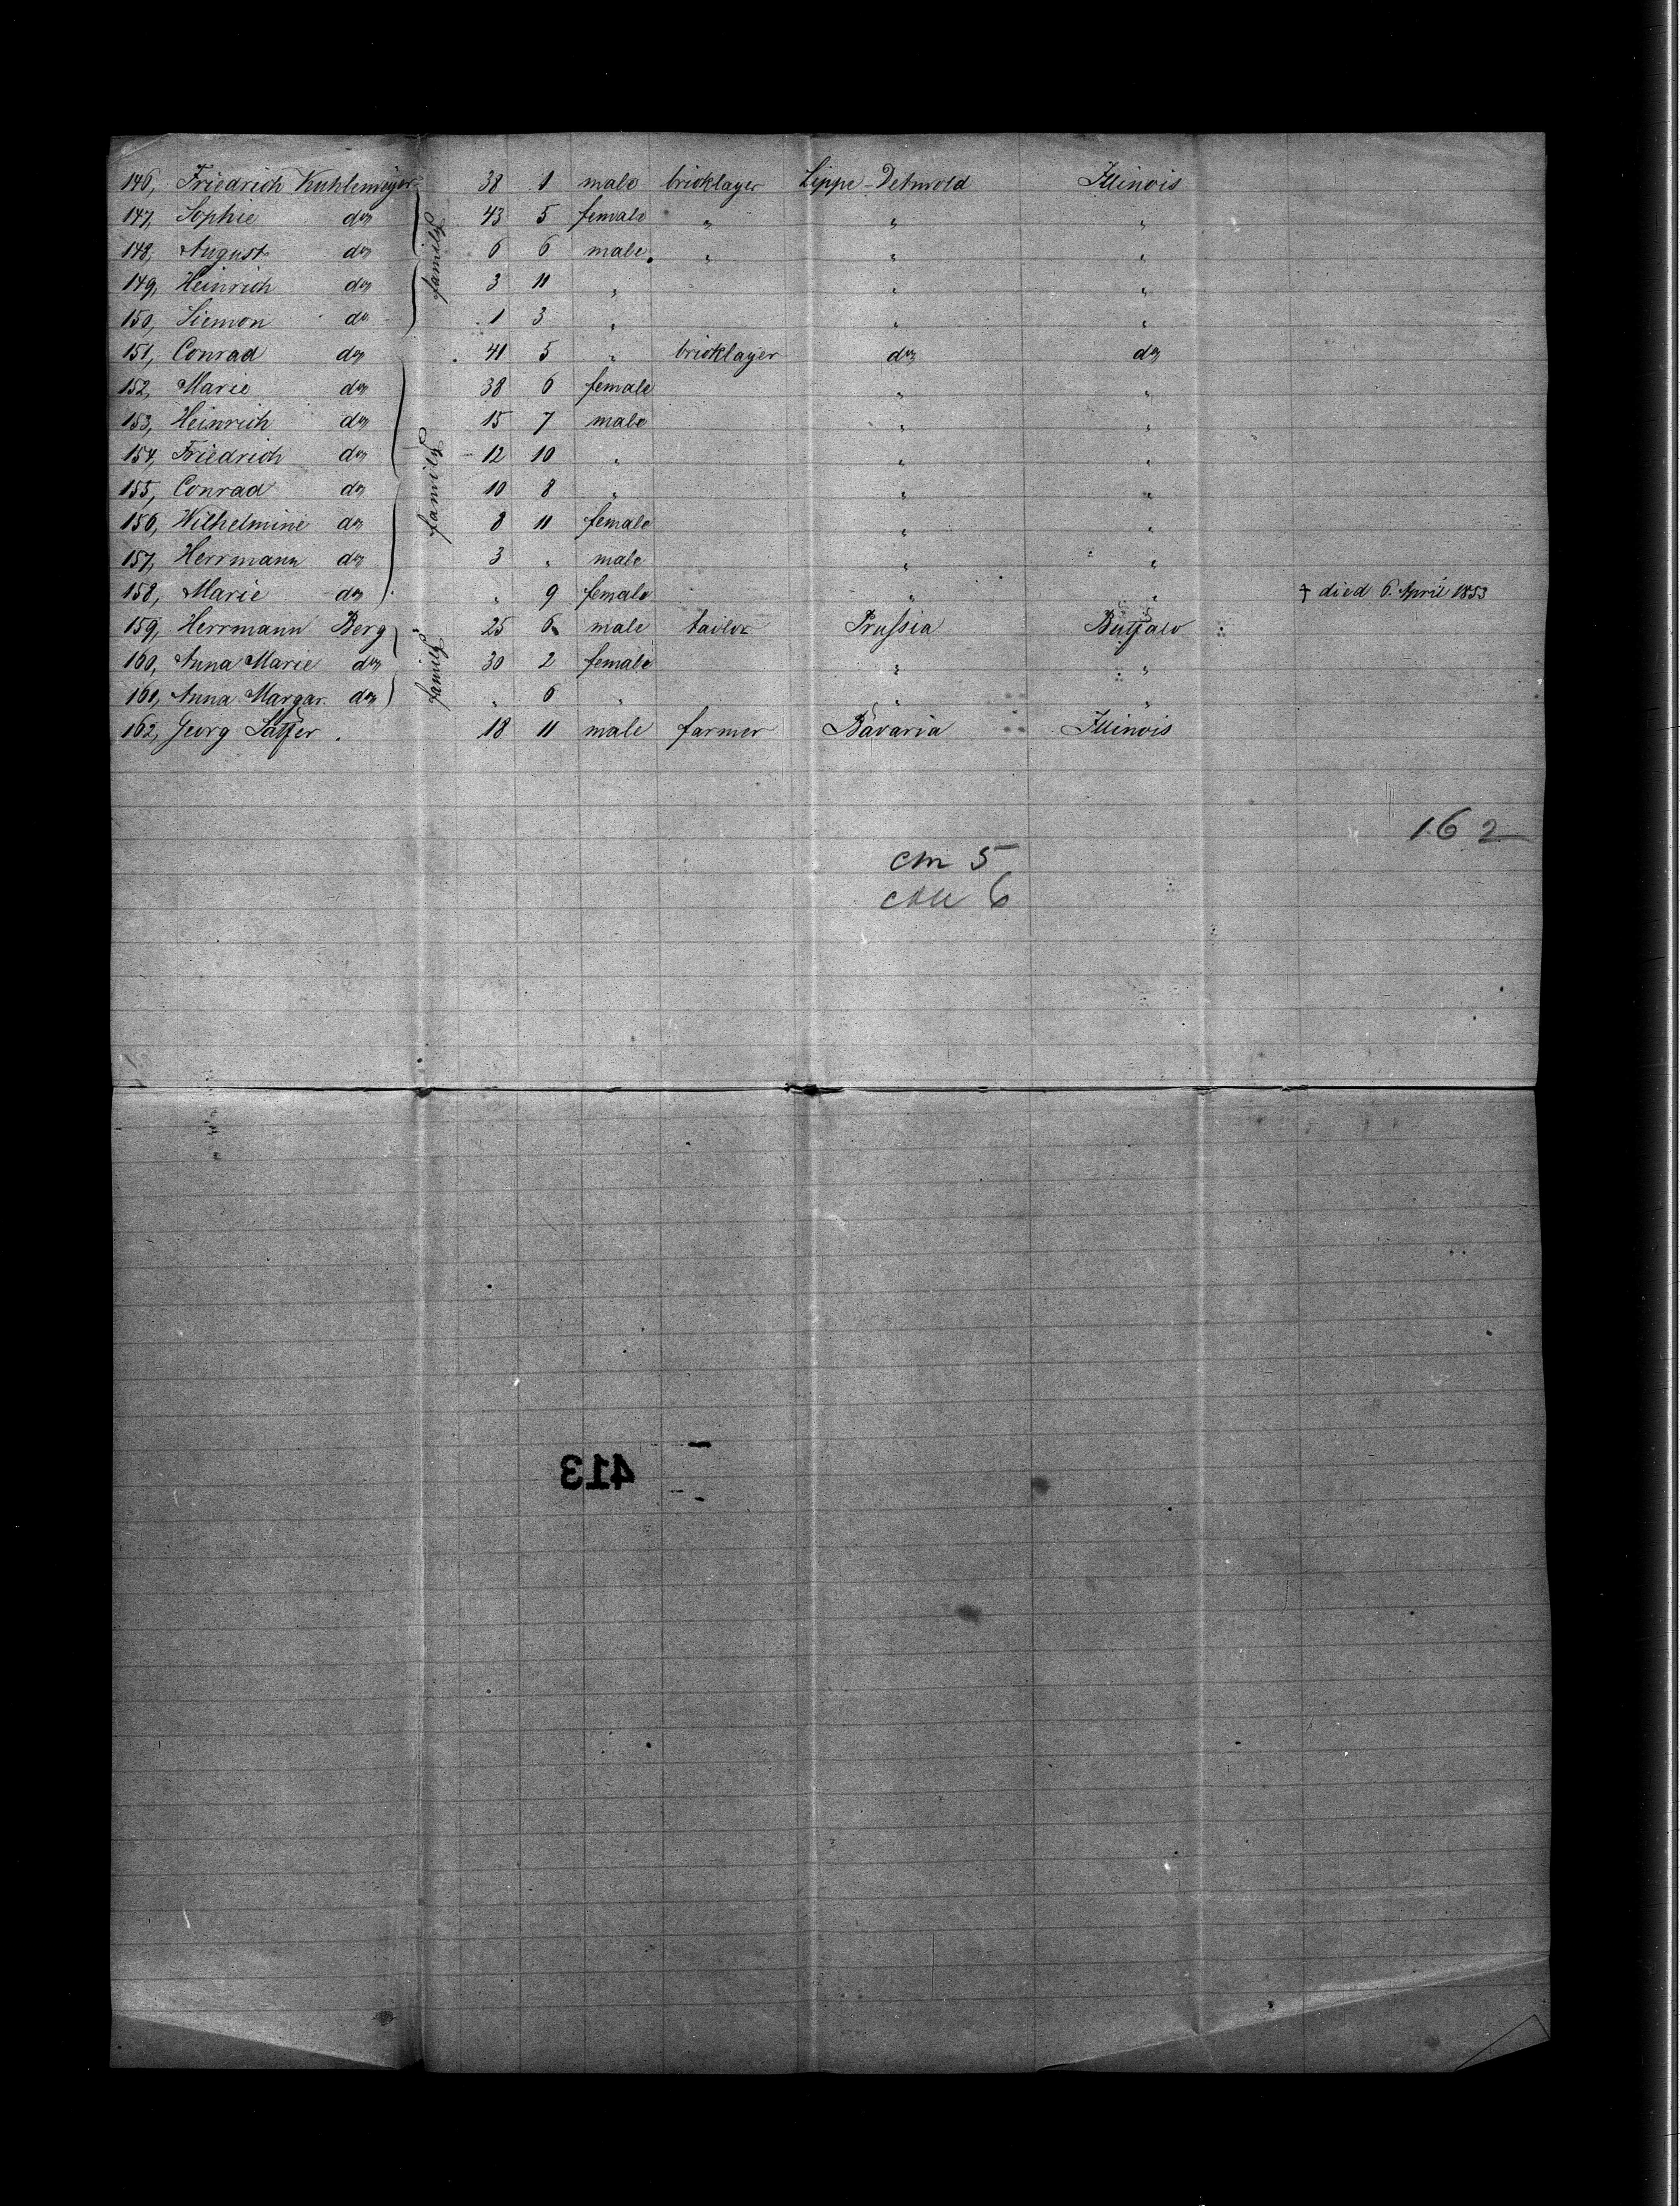 146, Friedrich Kuhlemeyer 38 1 male bricklayer Lippe-Detmold Illinois
147, Sophie do 43 5 female " " "
148, August do 6 6 male " " "
149, Heinrich do family 3 11 " " "
150, Siemon do 1 3 " " "
151, Conrad do 41 5 " bricklayer do do
152, Marie do 38 6 female " "
153, Heinrich do 15 7 male " "
154, Friedrich do 12 10 " " "
155, Conrad do family 10 8 " " "
156, Wilhelmine do 8 11 female " "
157, Herrmann do 3 " male " "
158, Marie do " 9 female " " † died 6. April 1853
159, Herrmann Berg 25 6 male tailor Prussia Buffalo
160, Anna Marie do family 30 2 female " "
161, Anna Margar. do " 6 " " "
162, Georg 18 11 male farmer Bavaria Illinois
162
cm 5
6
413